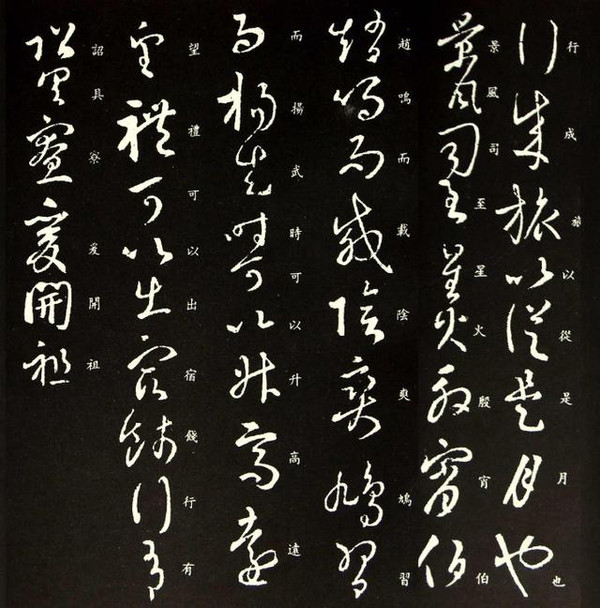 行成旅以從是月也
景風司至星火殷宵伯
趙鳴而載陰爽鳩習
而揚武時可以升高遠
望禮可以出宿錢行有
詔具寮爰開祖